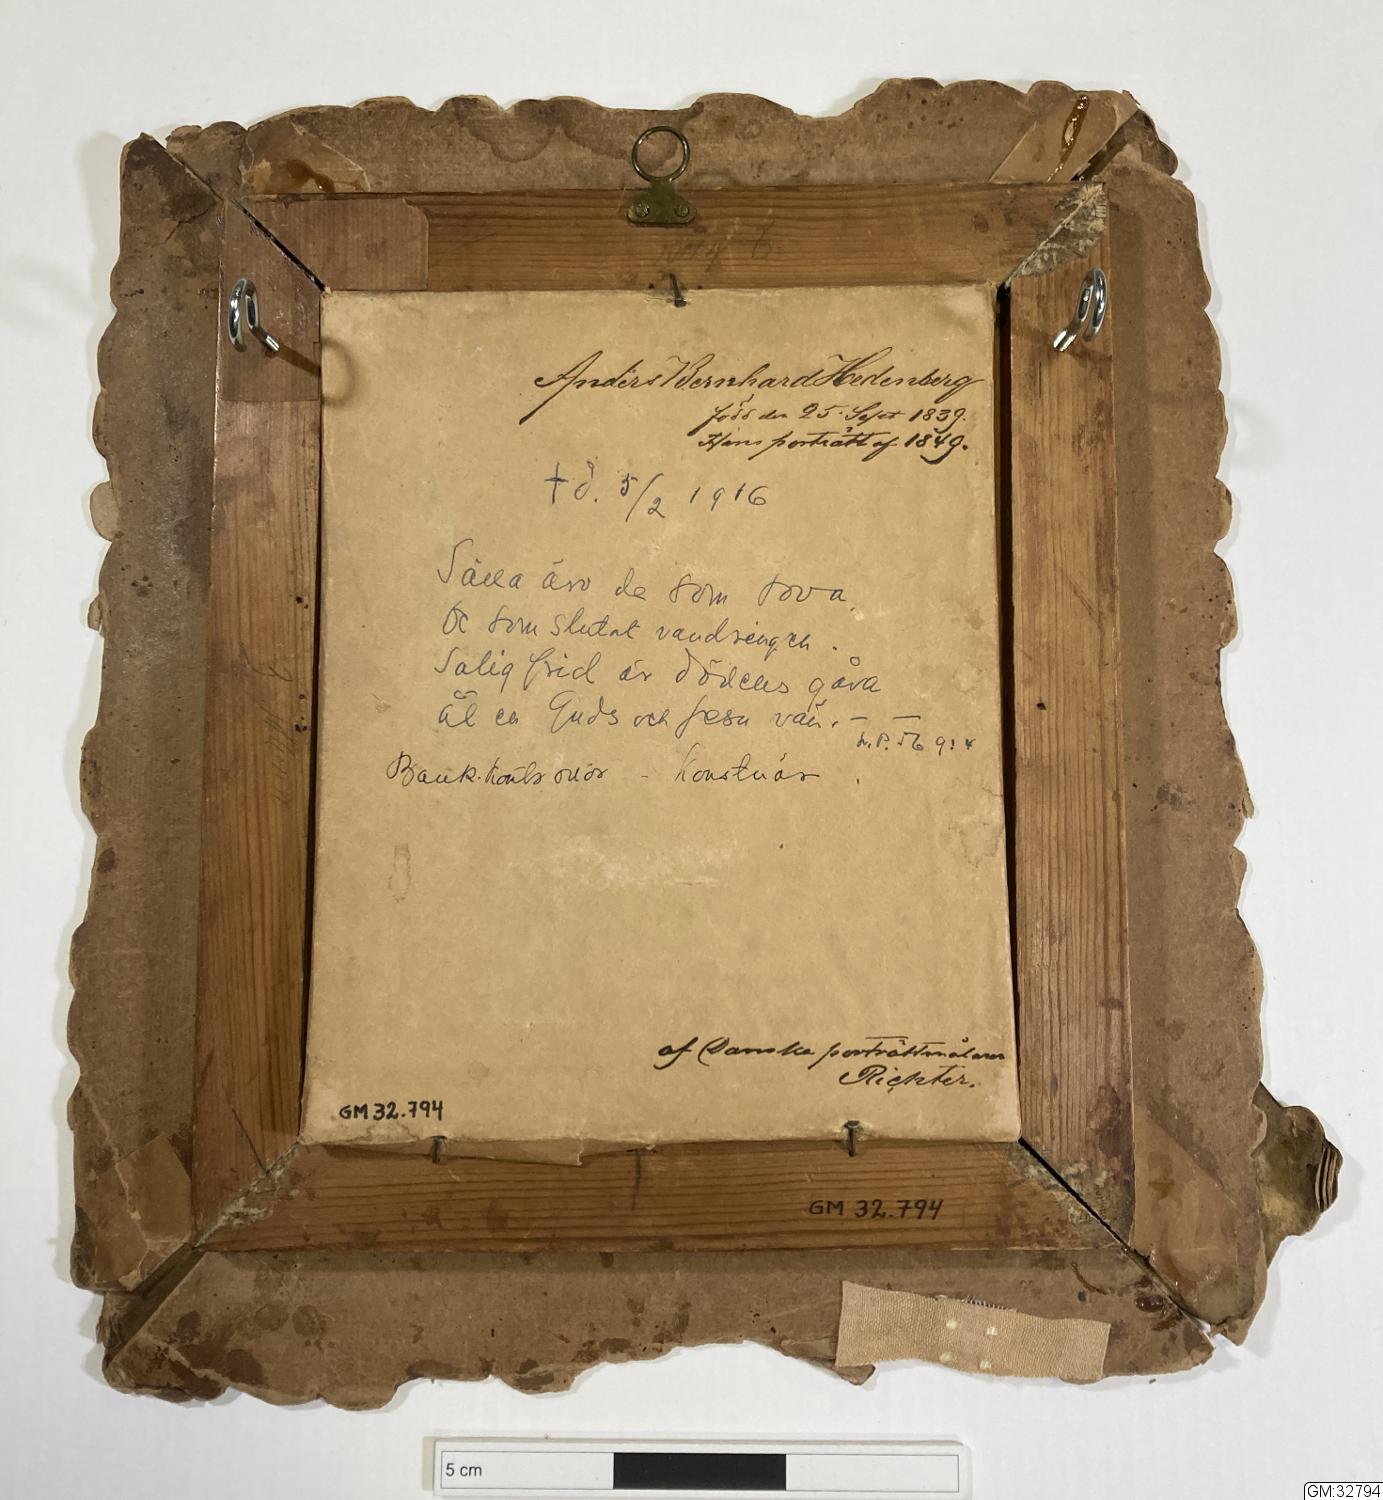 Anders Bernhard Hedenberg
född den 25. Sept 1839.
Hans porträtt af 1849.
† d. 5/2 1916
Sälla äro de som sova,
De som slutat vandringen.
Salig frid är dödens gåva
åt en Guds och Jesu vän. — —
56 9:4
Bank.kontrollör - Konstnär.
af Danske porträttmålaren
Richter.
GM 32.794
GM 32.794
5 cm
GM:32794